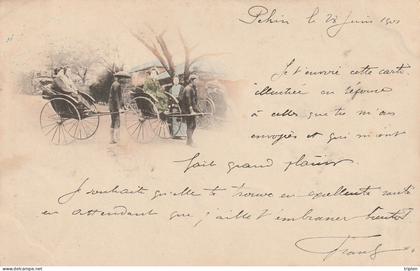 Pekin le 28 Juin 1900
Je t'envoie cette carte
illustrée en réponse
à celles que tu m'as
envoyées et qui m'ont
fait grand plaisir
Je souhaite qu'elle te trouve en excellente santé
en attendant que j'aille t'embrasser
Frank